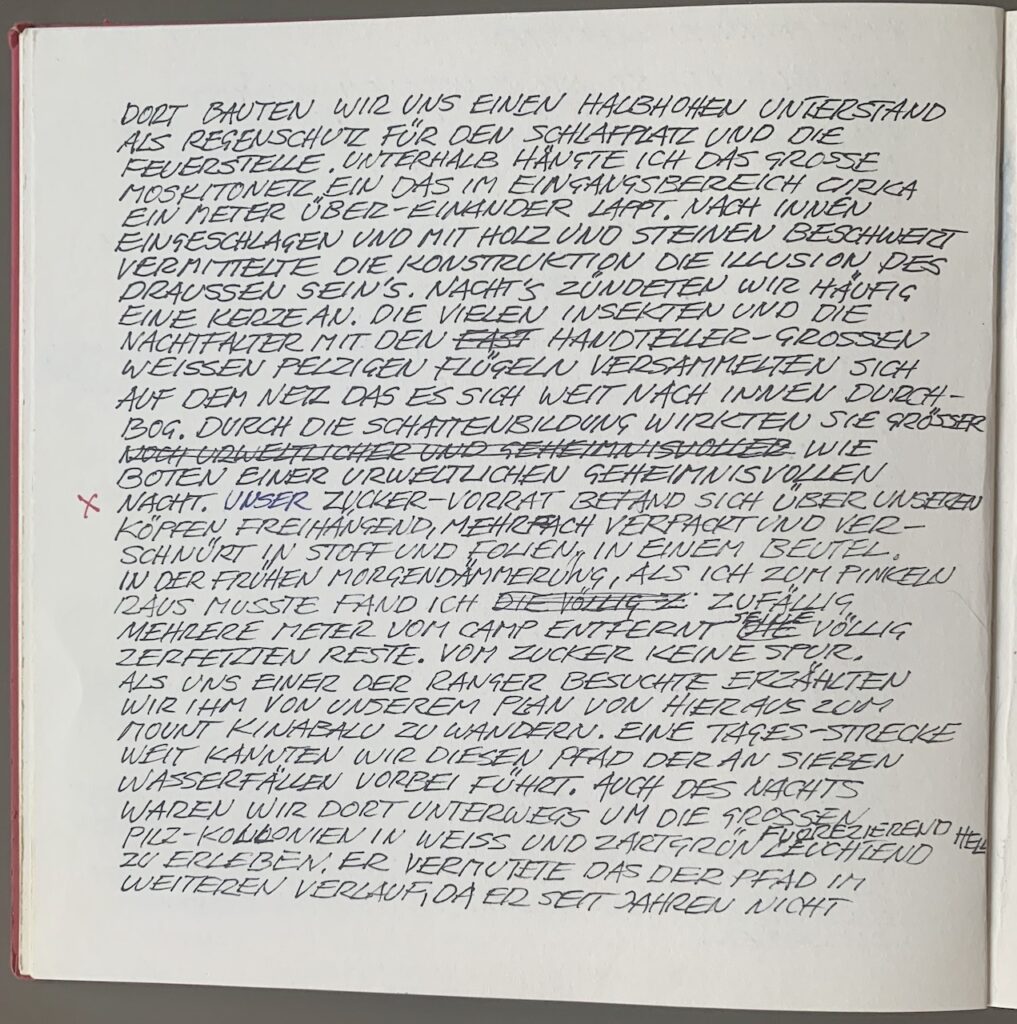 DORT BAUTEN WIR UNS EINEN HALBHOHEN UNTERSTAND
ALS REGENSCHUTZ FÜR DEN SCHLAFPLATZ UND DIE
FEUERSTELLE. UNTERHALB HÄNGTE ICH DAS GROSSE
MOSKITONETZ EIN DAS IM EINGANGSBEREICH CIRKA
EIN METER ÜBER-EINANDER LAPPT. NACH INNEN
EINGESCHLAGEN UND MIT HOLZ UND STEINEN BESCHWERT
VERMITTELTE DIE KONSTRUKTION DIE ILLUSION DES
DRAUSSEN SEIN'S. NACHT'S ZÜNDETEN WIR HÄUFIG
EINE KERZE AN. DIE VIELEN INSEKTEN UND DIE
NACHTFALTER MIT DEN FAST HANDTELLER-GROSSEN
WEISSEN PELZIGEN FLÜGELN VERSAMMELTEN SICH
AUF DEM NETZ DAS ES SICH WEIT NACH INNEN DURCH-
BOG. DURCH DIE SCHATTENBILDUNG WIRKTEN SIE GRÖSSER
NOCH URWELTLICHER UND GEHEIMNISVOLLER WIE
BOTEN EINER URWELTLICHEN GEHEIMNISVOLLEN
X NACHT. UNSER ZUCKER-VORRAT BEFAND SICH ÜBER UNSEREN
KÖPFEN FREIHÄNGEND, MEHRFACH VERPACKT UND VER-
SCHNÜRT IN STOFF UND FOLIEN, IN EINEM BEUTEL.
IN DER FRÜHEN MORGENDÄMMERUNG, ALS ICH ZUM PINKELN
RAUS MUSSTE FAND ICH DIE VÖLLIG Z ZUFÄLLIG
MEHRERE METER VOM CAMP ENTFERNT DIE SEINE VÖLLIG
ZERFETZTEN RESTE. VOM ZUCKER KEINE SPUR.
ALS UNS EINER DER RANGER BESUCHTE ERZÄHLTEN
WIR IHM VON UNSEREM PLAN VON HIER AUS ZUM
MOUNT KINABALU ZU WANDERN. EINE TAGES-STRECKE
WEIT KANNTEN WIR DIESEN PFAD DER AN SIEBEN
WASSERFÄLLEN VORBEI FÜHRT. AUCH DES NACHTS
WAREN WIR DORT UNTERWEGS UM DIE GROSSEN
PILZ-KOLLONIEN IN WEISS UND ZARTGRÜN FURREZIEREND HELL LEUCHTEND
ZU ERLEBEN. ER VERMUTETE DAS DER PFAD IM
WEITEREN VERLAUF, DA ER SEIT JAHREN NICHT